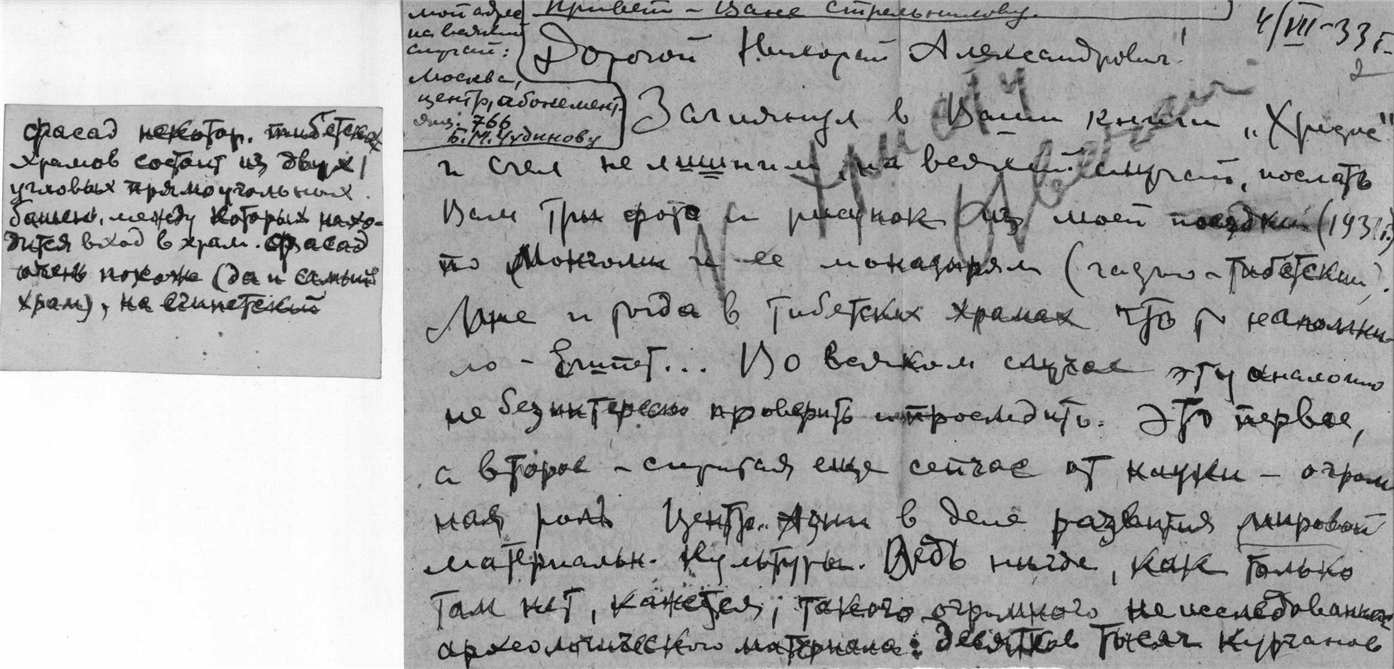 фасад некотор. тибетских
храмов состоит из двух
угловых прямоугольных
башен, между которых нахо-
дится вход в храм. Фасад
очень похож (да и самый
храм), на египетский
Привет - Ване Стрельникову.
мой адрес
на всякий
случай:
Москва,
центр, абонемент.
ящ. 766
Б. М. Чудинову
4/VII-33 г.
2
Дорогой Николай Александрович!
Заглянул в Ваши книги „Христос"
и счел не лишним, на всякий случай, послать
Вам три фото и рисунок из моей поездки (1931 г.)
по Монголии и ее монастырям (
Мне и тогда в тибетских храмах что-то напомни-
ло - Египет... Во всяком случае эту аналогию
не безинтересно проверить и проследить. Это первое,
а второе - скрытая еще сейчас от науки - огром
ная роль Центр. Азии в деле развития мировой
материальн. культуры. Ведь нигде, как только
там нет, кажется, такого огромного неисследованного
археологического материала: десятков тысяч курганов